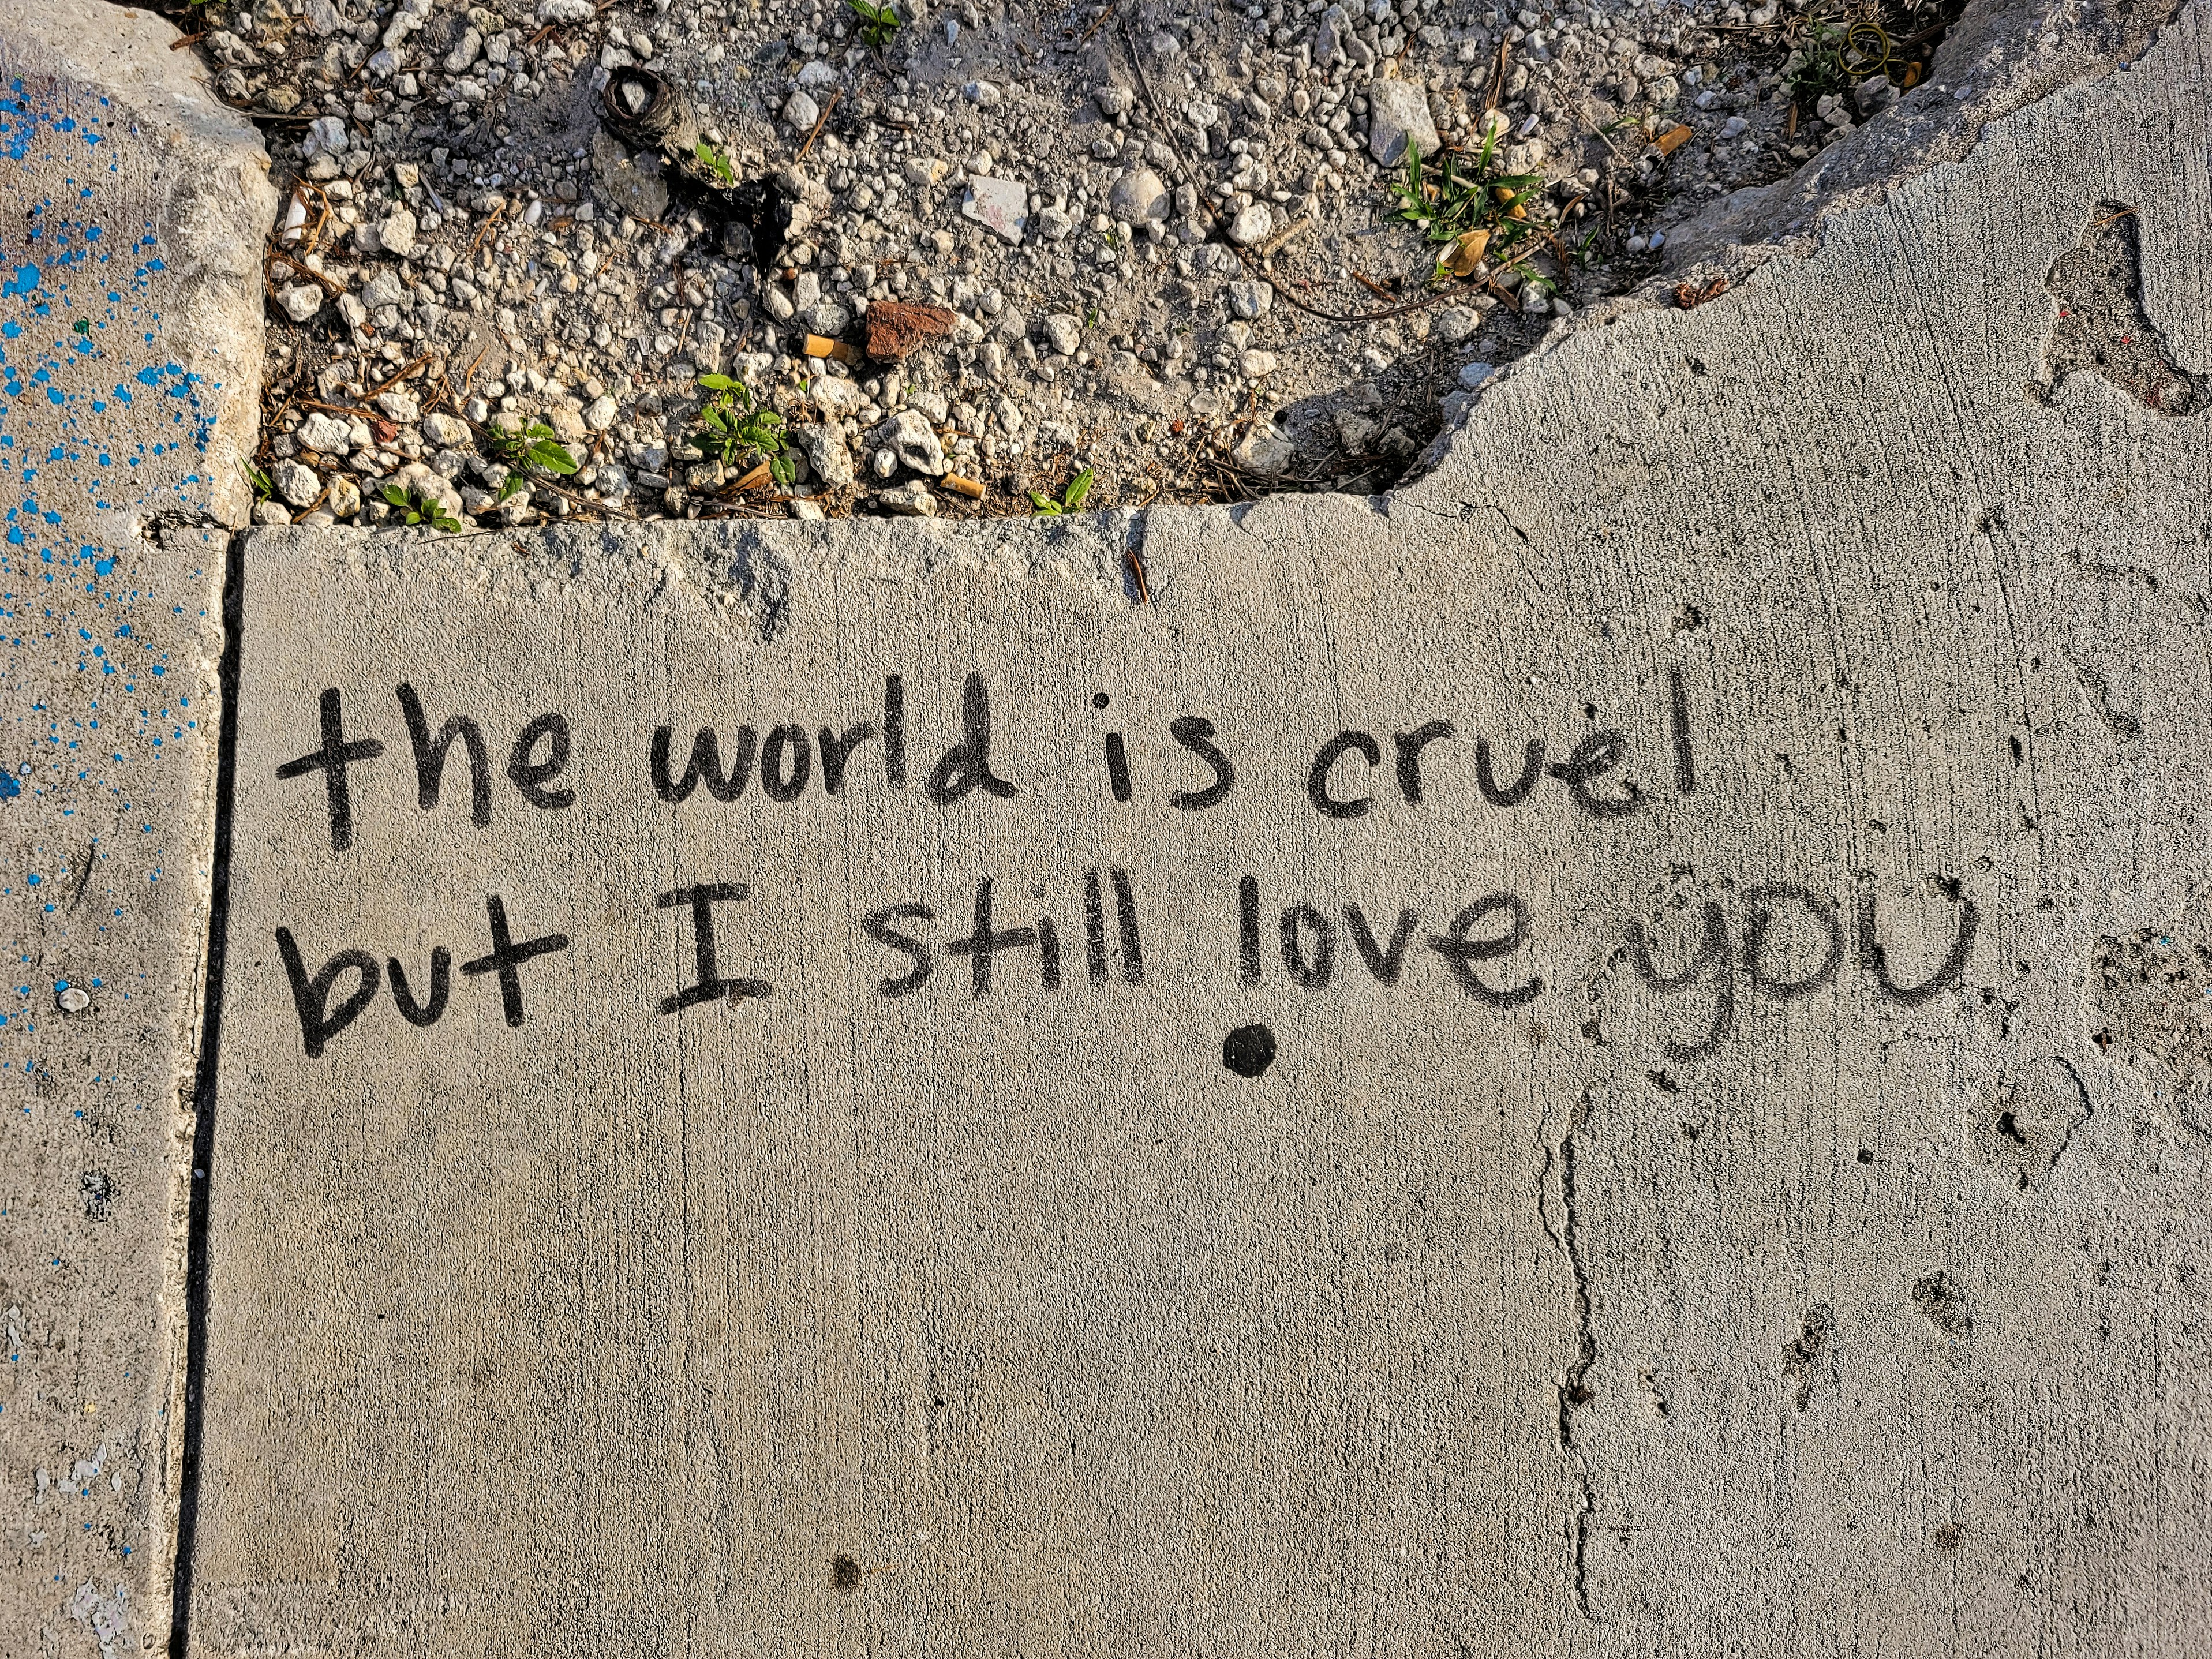 the world is cruel
but I still love you